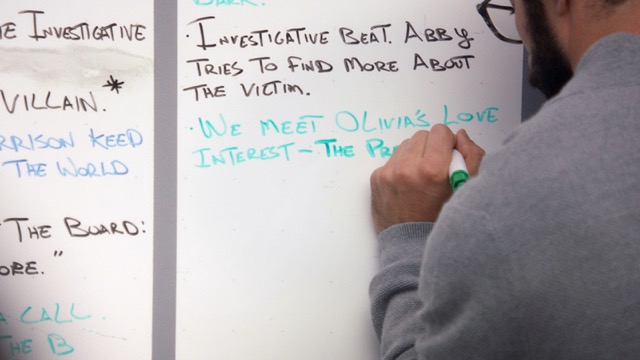 INVESTIGATIVE
VILLAIN.*
KEED
THE WORLD
THE BOARD:
CALL.
THE B
DARK.
· INVESTIGATIVE BEAT. ABBY
TRIES TO FIND MORE ABOUT
THE VICTIM.
· WE MEET OLIVIA'S LOVE
INTEREST - THE